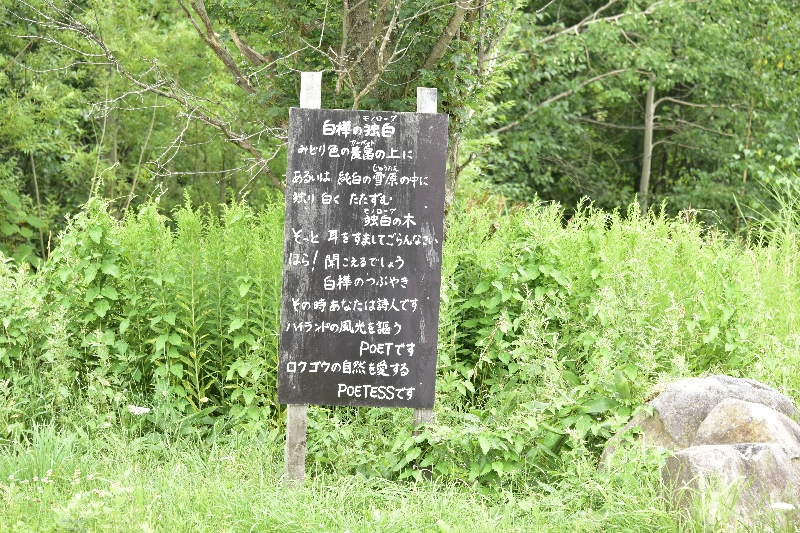 モノローグ
白樺の独白
カーペット
みどり色の麦畠の上に
じゅうたん
あるいは 純白の雪原の中に
独り 白く たたずむ
モノローグ
独白の木
そっと 耳をすましてごらんなさい
ほら！聞こえるでしょう
白樺のつぶやき
その時あなたは詩人です
ハイランドの風光を謳う
POETです
ロクゴウの自然を愛する
POETESSです